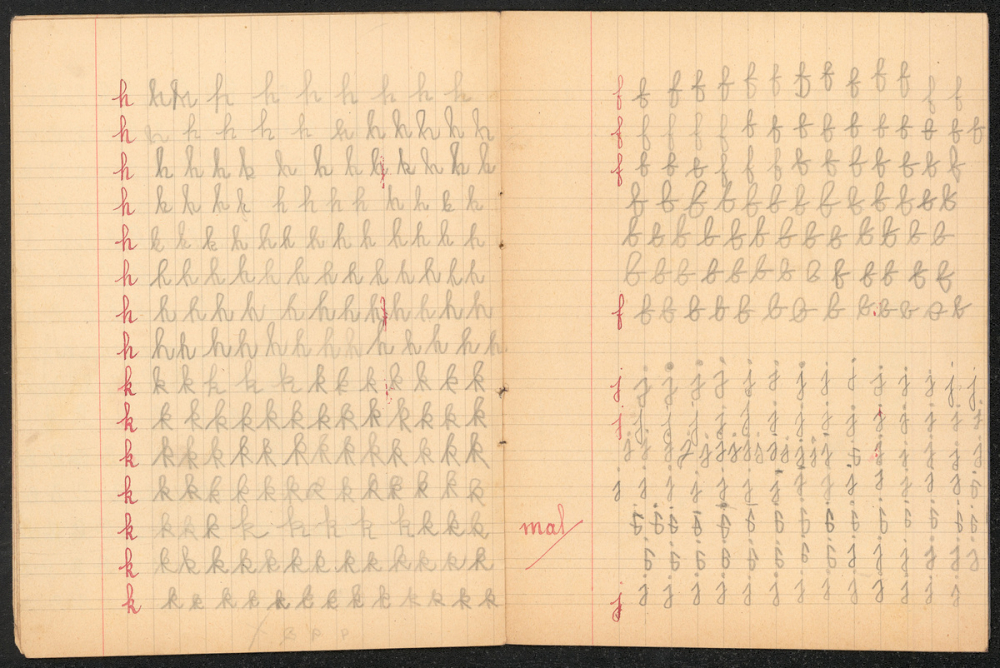 h h h h h h h h h h
h h h h h h h h h h h h
h h h h h h h h h h h h h
h h h h h h h h h h h h
h h h h h h h h h h h h h
h h h h h h h h h h h h h
h h h h h h h h h h h h
h h h h h h h h h h h h h
k k k k k k k k k k k k k
k k k k k k k k k k k k k
k k k k k k k k k k k k k
k k k k k k k k k k k k k
k k k k k k k k k k k
k k k k k k k k k k k k k
k k k k k k k k k k k k k
f f f f f f f f f f f f f f
f f f f f f f f f f f f f f f
f f f f f f f f f f f f f f
f f f f f f f f f f f f f
f f f f f f f f f f f f f
f f f f f f f f f f f f f
f f f f f f f f f f f f f f
j j j j j j j j j j j j j j
j j j j j j j j j j j j j j
j j j j j j j j j j j j j j j j
j j j j j j j j j j j j j j
mal j j j j j j j j j j j j j j
j j j j j j j j j j j j j
j j j j j j j j j j j j j j